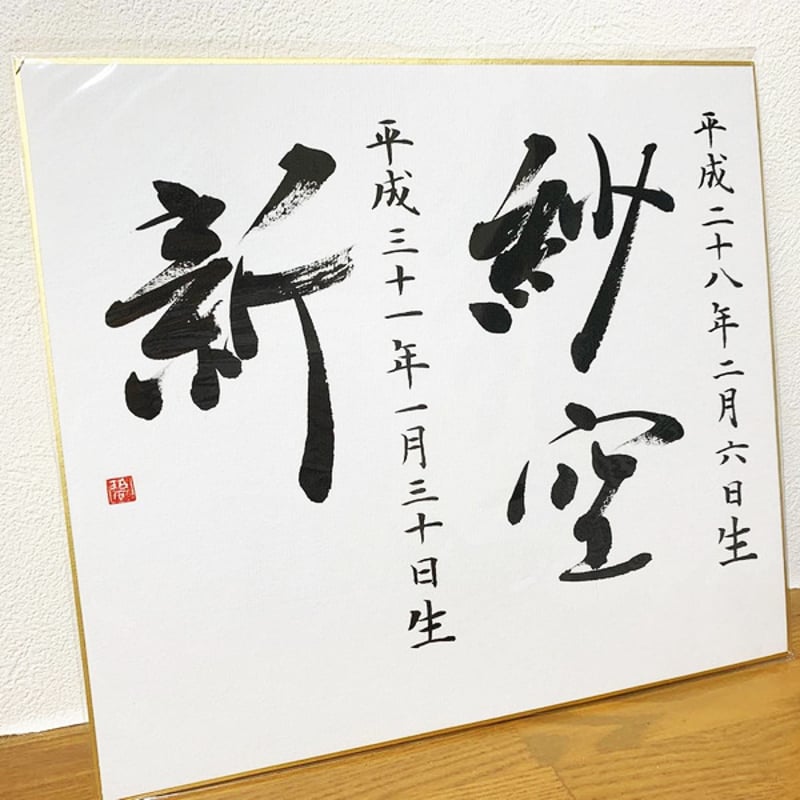 平成二十八年二月六日生
紗空
平成三十一年一月三十日生
新